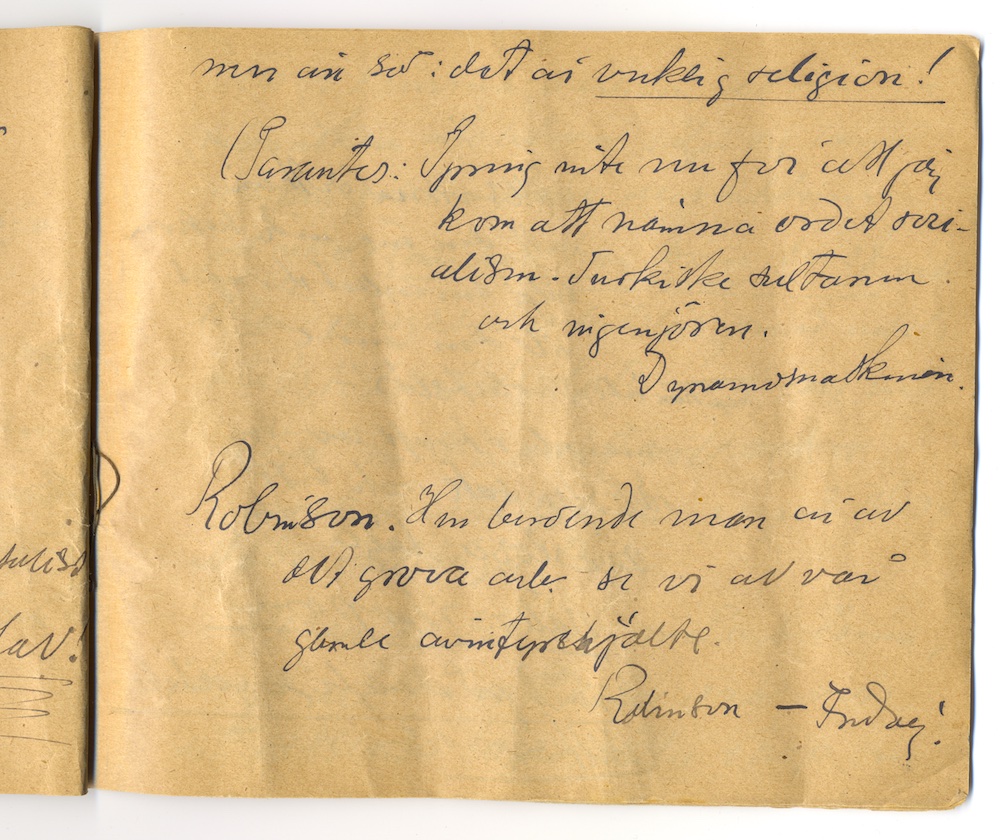 mer än så: det är verklig religion!
(Parantes: Spring inte nu för att jag
kom att nämna ordet soci-
alism. Turkiske sultanen
och ingenjören.
Dynamomaskinen.
Robinson. Hur beroende man är av
det grova arb. se vi av vår
gamle äventyrshjälte.
Robinson – Fredag.